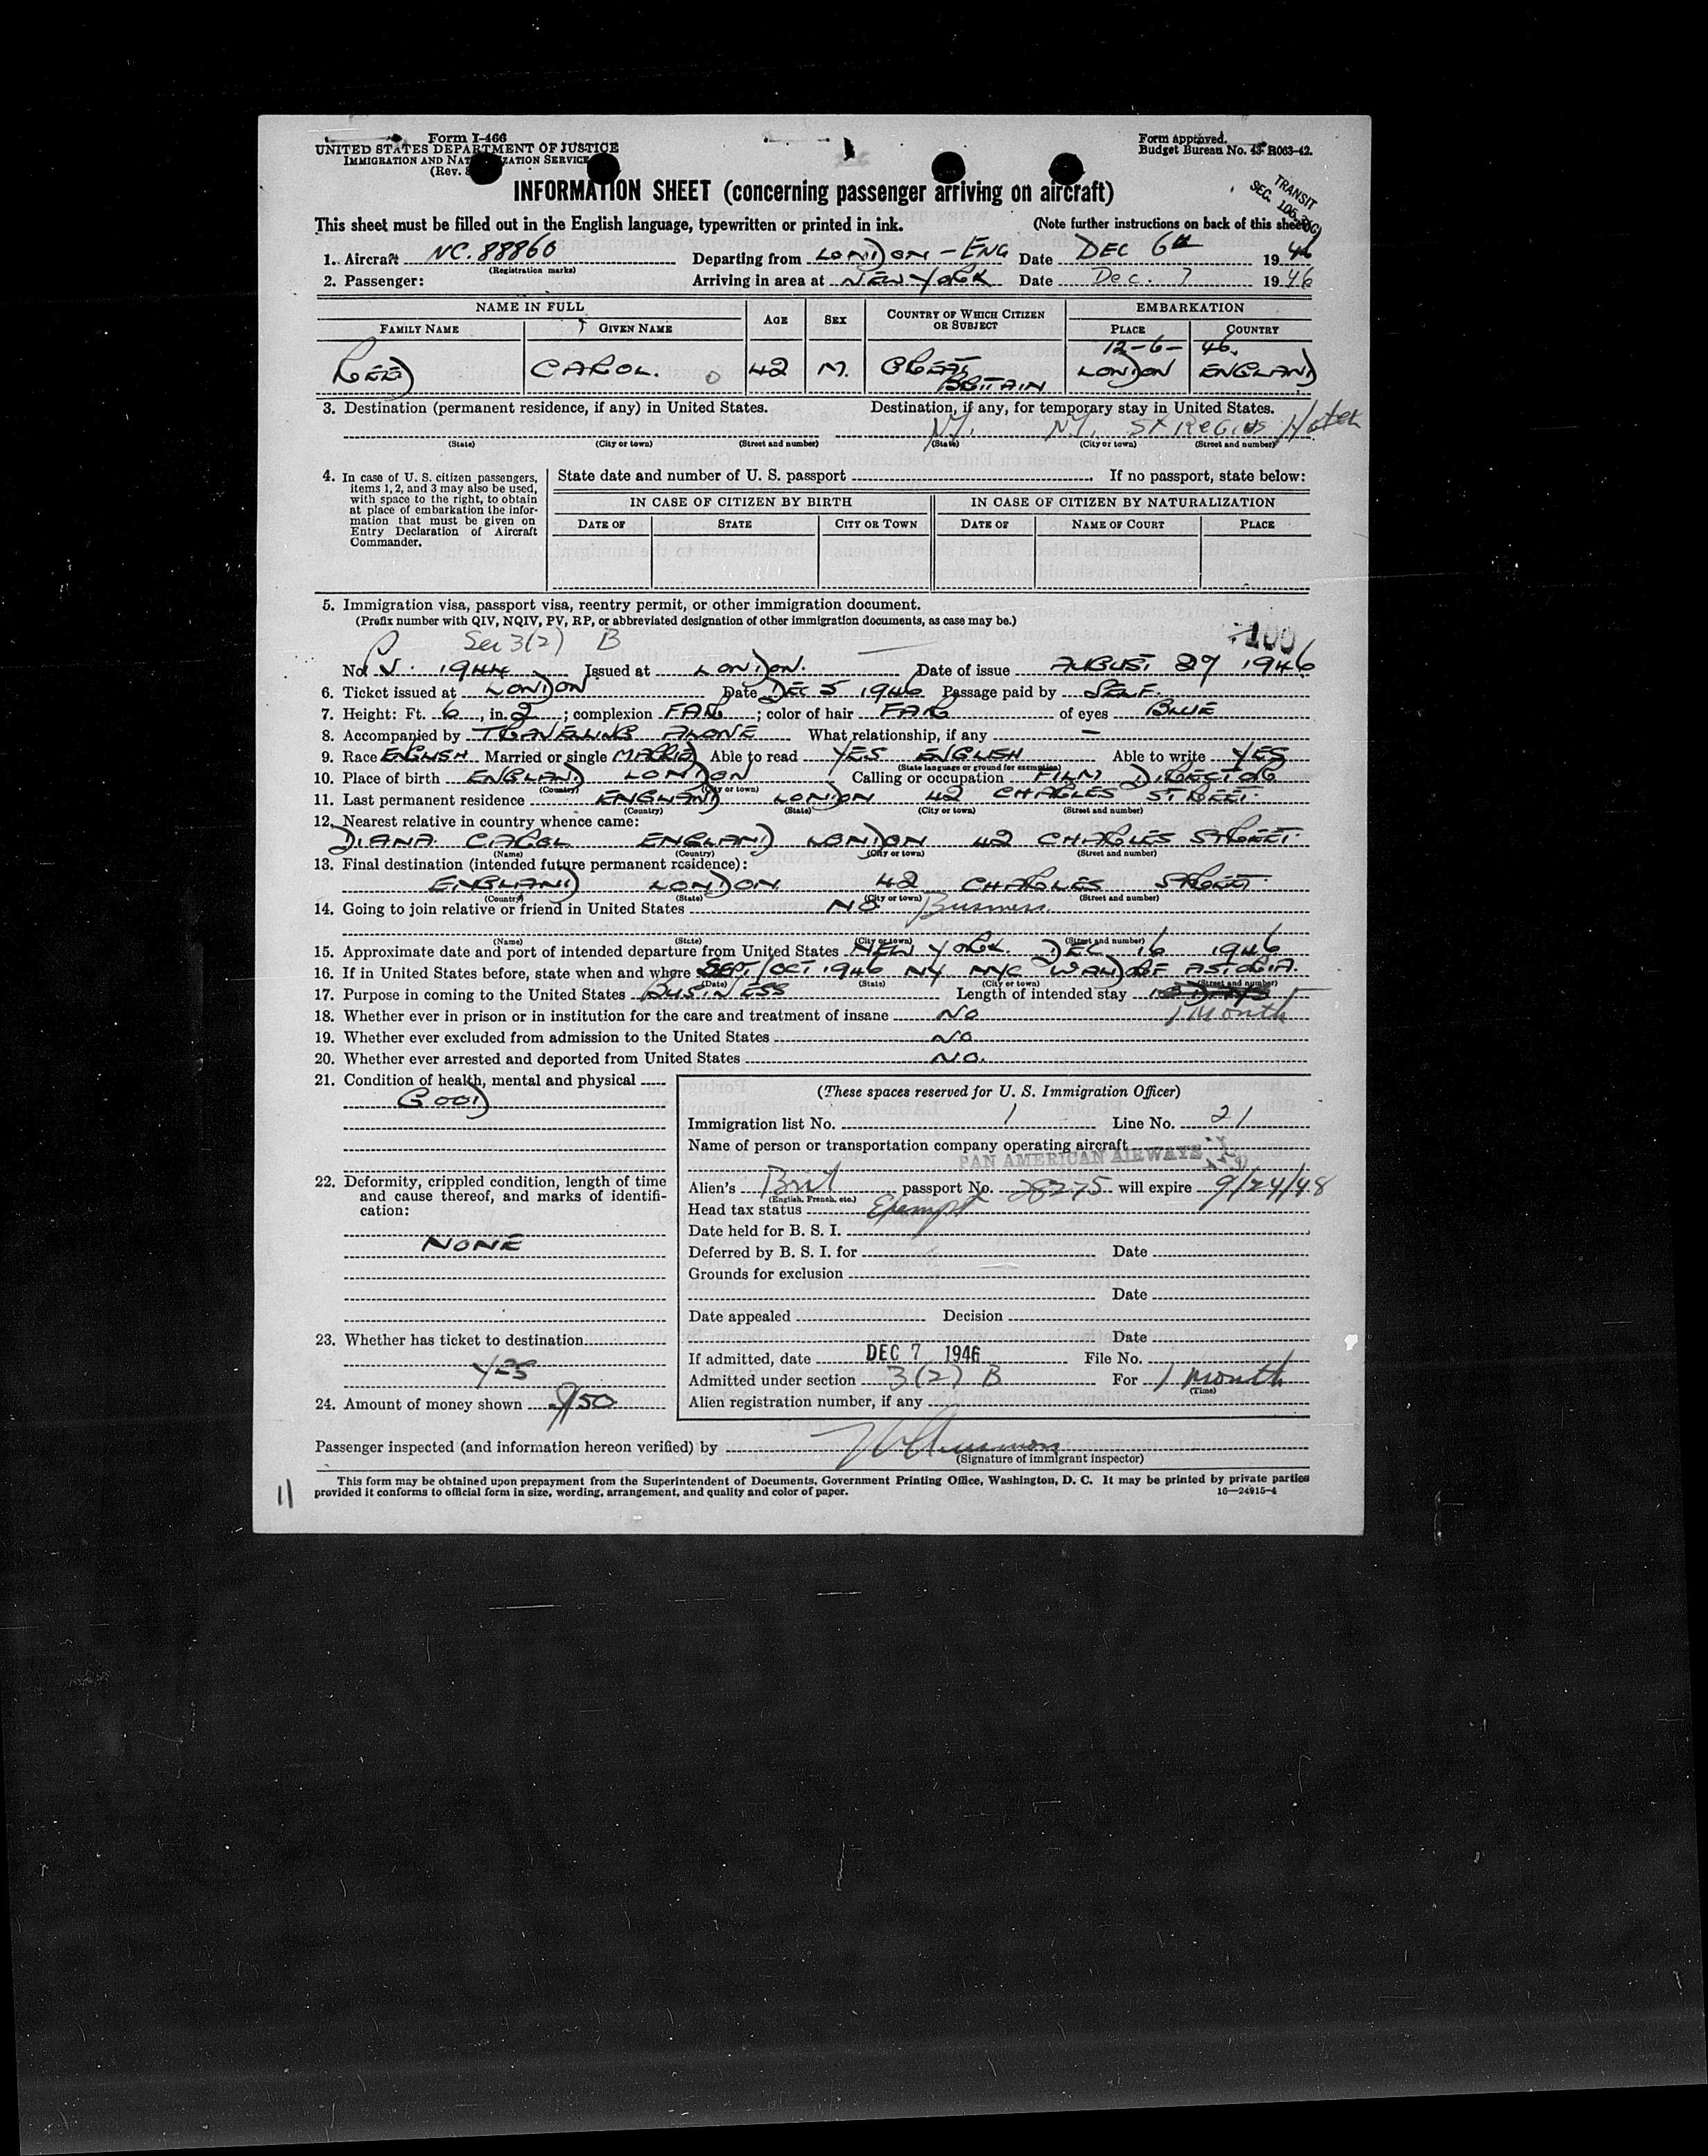 Form I-466
UNITED STATES DEPARTMENT OF JUSTICE
IMMIGRATION AND NATURALIZATION SERVICE
(Rev.
Form approved.
Budget Bureau No. 43-R063-42.
INFORMATION SHEET (concerning passenger arriving on aircraft)
TRANSIT
SEC. 106.
This sheet must be filled out in the English language, typewritten or printed in ink. (Note further instructions on back of this sheet)
1. Aircraft NC. 88860 Departing from LONDON - ENG Date DEC 6th 1946
(Registration marks)
2. Passenger: Arriving in area at NEW YORK Date Dec. 7 1946
NAME IN FULL AGE SEX COUNTRY OF WHICH CITIZEN OR SUBJECT EMBARKATION
FAMILY NAME GIVEN NAME PLACE COUNTRY
12-6-46.
REED CAROL. O 42 M. GREAT BRITAIN LONDON ENGLAND
3. Destination (permanent residence, if any) in United States. Destination, if any, for temporary stay in United States.
NY. NY. St Regis Hotel
(State) (City or town) (Street and number) (State) (City or town) (Street and number)
4. In case of U. S. citizen passengers, items 1, 2, and 3 may also be used, with space to the right, to obtain at place of embarkation the information that must be given on Entry Declaration of Aircraft Commander.
State date and number of U. S. passport If no passport, state below:
IN CASE OF CITIZEN BY BIRTH IN CASE OF CITIZEN BY NATURALIZATION
DATE OF STATE CITY OR TOWN DATE OF NAME OF COURT PLACE
5. Immigration visa, passport visa, reentry permit, or other immigration document.
(Prefix number with QIV, NQIV, PV, RP, or abbreviated designation of other immigration documents, as case may be.)
Sec 3(2) B 100
No. P.V. 1944 Issued at LONDON. Date of issue AUGUST 27 1946
6. Ticket issued at LONDON Date DEC 5 1946 Passage paid by SELF.
7. Height: Ft. 6, in. 2; complexion FAIR; color of hair FAIR of eyes BLUE
8. Accompanied by TRAVELLING ALONE What relationship, if any —
9. Race ENGLISH Married or single MARRIED Able to read YES ENGLISH Able to write YES
(State language or ground for exemption)
10. Place of birth ENGLAND LONDON Calling or occupation FILM DIRECTOR
(Country) (City or town)
11. Last permanent residence ENGLAND LONDON 42 CHARLES STREET.
(Country) (State) (City or town) (Street and number)
12. Nearest relative in country whence came:
DIANA CAROL ENGLAND LONDON 42 CHARLES STREET.
(Name) (Country) (City or town) (Street and number)
13. Final destination (intended future permanent residence):
ENGLAND LONDON 42 CHARLES STREET.
(Country) (State) (City or town) (Street and number)
14. Going to join relative or friend in United States NO Business.
(Name) (State) (City or town) (Street and number)
15. Approximate date and port of intended departure from United States NEW YORK. DEC 16 1946
16. If in United States before, state when and where SEPT/OCT 1946 NY NYC WALDORF ASTORIA.
(Date) (State) (City or town) (Street and number)
17. Purpose in coming to the United States BUSINESS Length of intended stay
1 Month
18. Whether ever in prison or in institution for the care and treatment of insane NO
19. Whether ever excluded from admission to the United States NO
20. Whether ever arrested and deported from United States NO.
21. Condition of health, mental and physical
GOOD
22. Deformity, crippled condition, length of time and cause thereof, and marks of identification:
NONE
23. Whether has ticket to destination
YES
24. Amount of money shown $150
(These spaces reserved for U. S. Immigration Officer)
Immigration list No. 1 Line No. 21
Name of person or transportation company operating aircraft
PAN AMERICAN AIRWAYS
Alien's Brit passport No. 28275 will expire 9/24/48
(English, French, etc.)
Head tax status Exempt
Date held for B. S. I.
Deferred by B. S. I. for Date
Grounds for exclusion
Date
Date appealed Decision
Date
If admitted, date DEC 7 1946 File No.
Admitted under section 3(2) B For 1 Month
(Time)
Alien registration number, if any
Passenger inspected (and information hereon verified) by
(Signature of immigrant inspector)
This form may be obtained upon prepayment from the Superintendent of Documents, Government Printing Office, Washington, D. C. It may be printed by private parties
provided it conforms to official form in size, wording, arrangement, and quality and color of paper. 16—24915-4
11